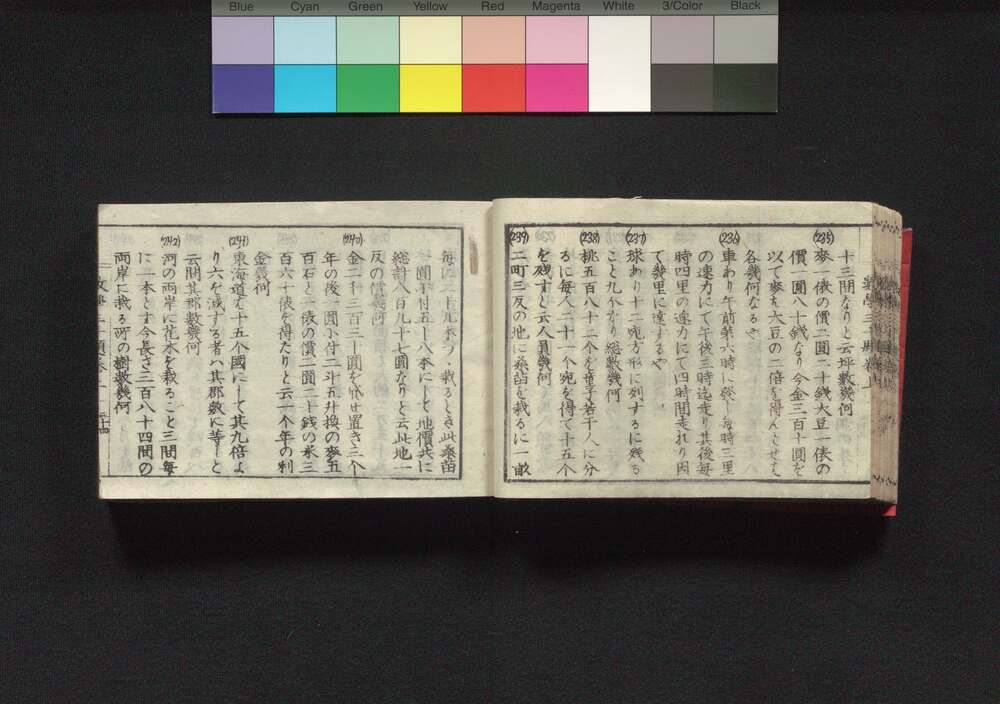 Blue Cyan Green Yellow Red Magenta White 3/Color Black
十三間なりと云坪数幾何
(235)麥一俵の價二圓二十銭大豆一俵の
價一圓八十銭なり今金三百十圓を
以て麥を大豆の二倍を得んとせば
各幾何なるや
(236)車あり午前第六時に發し毎時三里
の速力にて午後三時迄走り其後毎
時四里の速力にて四時間走れり因
て幾里に達するや
(237)球あり十二宛方形に列するに残る
こと九个なり総数幾何
(238)桃五百八十二个を童子若干人に分
るに毎人二十一个宛を得て十五个
を残すと云人員幾何
(239)二町三反の地に桑苗を栽るに一畝
毎に二十九本づゝ栽るとき此桑苗
一圓に付五十八本にして地價共に
総計八百九十七圓なりと云此地一
反の價幾何
(240)金二千三百三十圓を貯せ置き三个
年の後一圓に付二斗五升換の麥五
百石と一俵の價二圓二十銭の米三
百六十俵を得たりと云一个年の利
金幾何
(241)東海道は十五个國にして其九倍よ
り六を減ずる者ハ其郡数に等しと
云問其郡数幾何
(242)河の両岸に花木を栽ること三間毎
に一本とす今長さ三百八十四間の
両岸に栽る所の樹数幾何